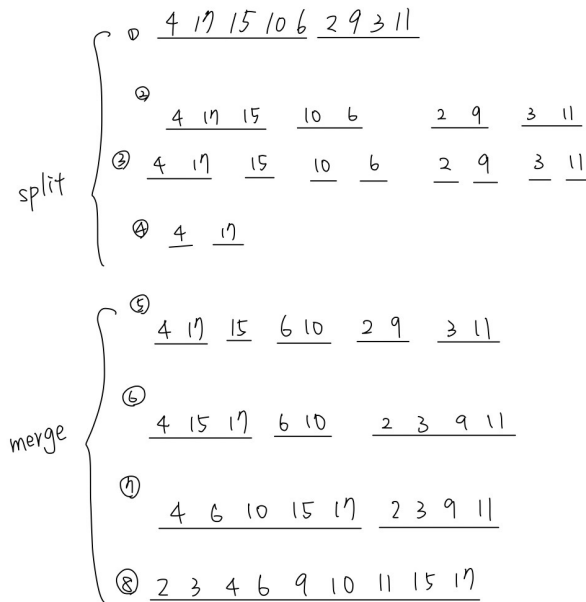 split
① 4 17 15 10 6 2 9 3 11
② 4 17 15 10 6 2 9 3 11
③ 4 17 15 10 6 2 9 3 11
④ 4 17
merge
⑤ 4 17 15 6 10 2 9 3 11
⑥ 4 15 17 6 10 2 3 9 11
⑦ 4 6 10 15 17 2 3 9 11
⑧ 2 3 4 6 9 10 11 15 17